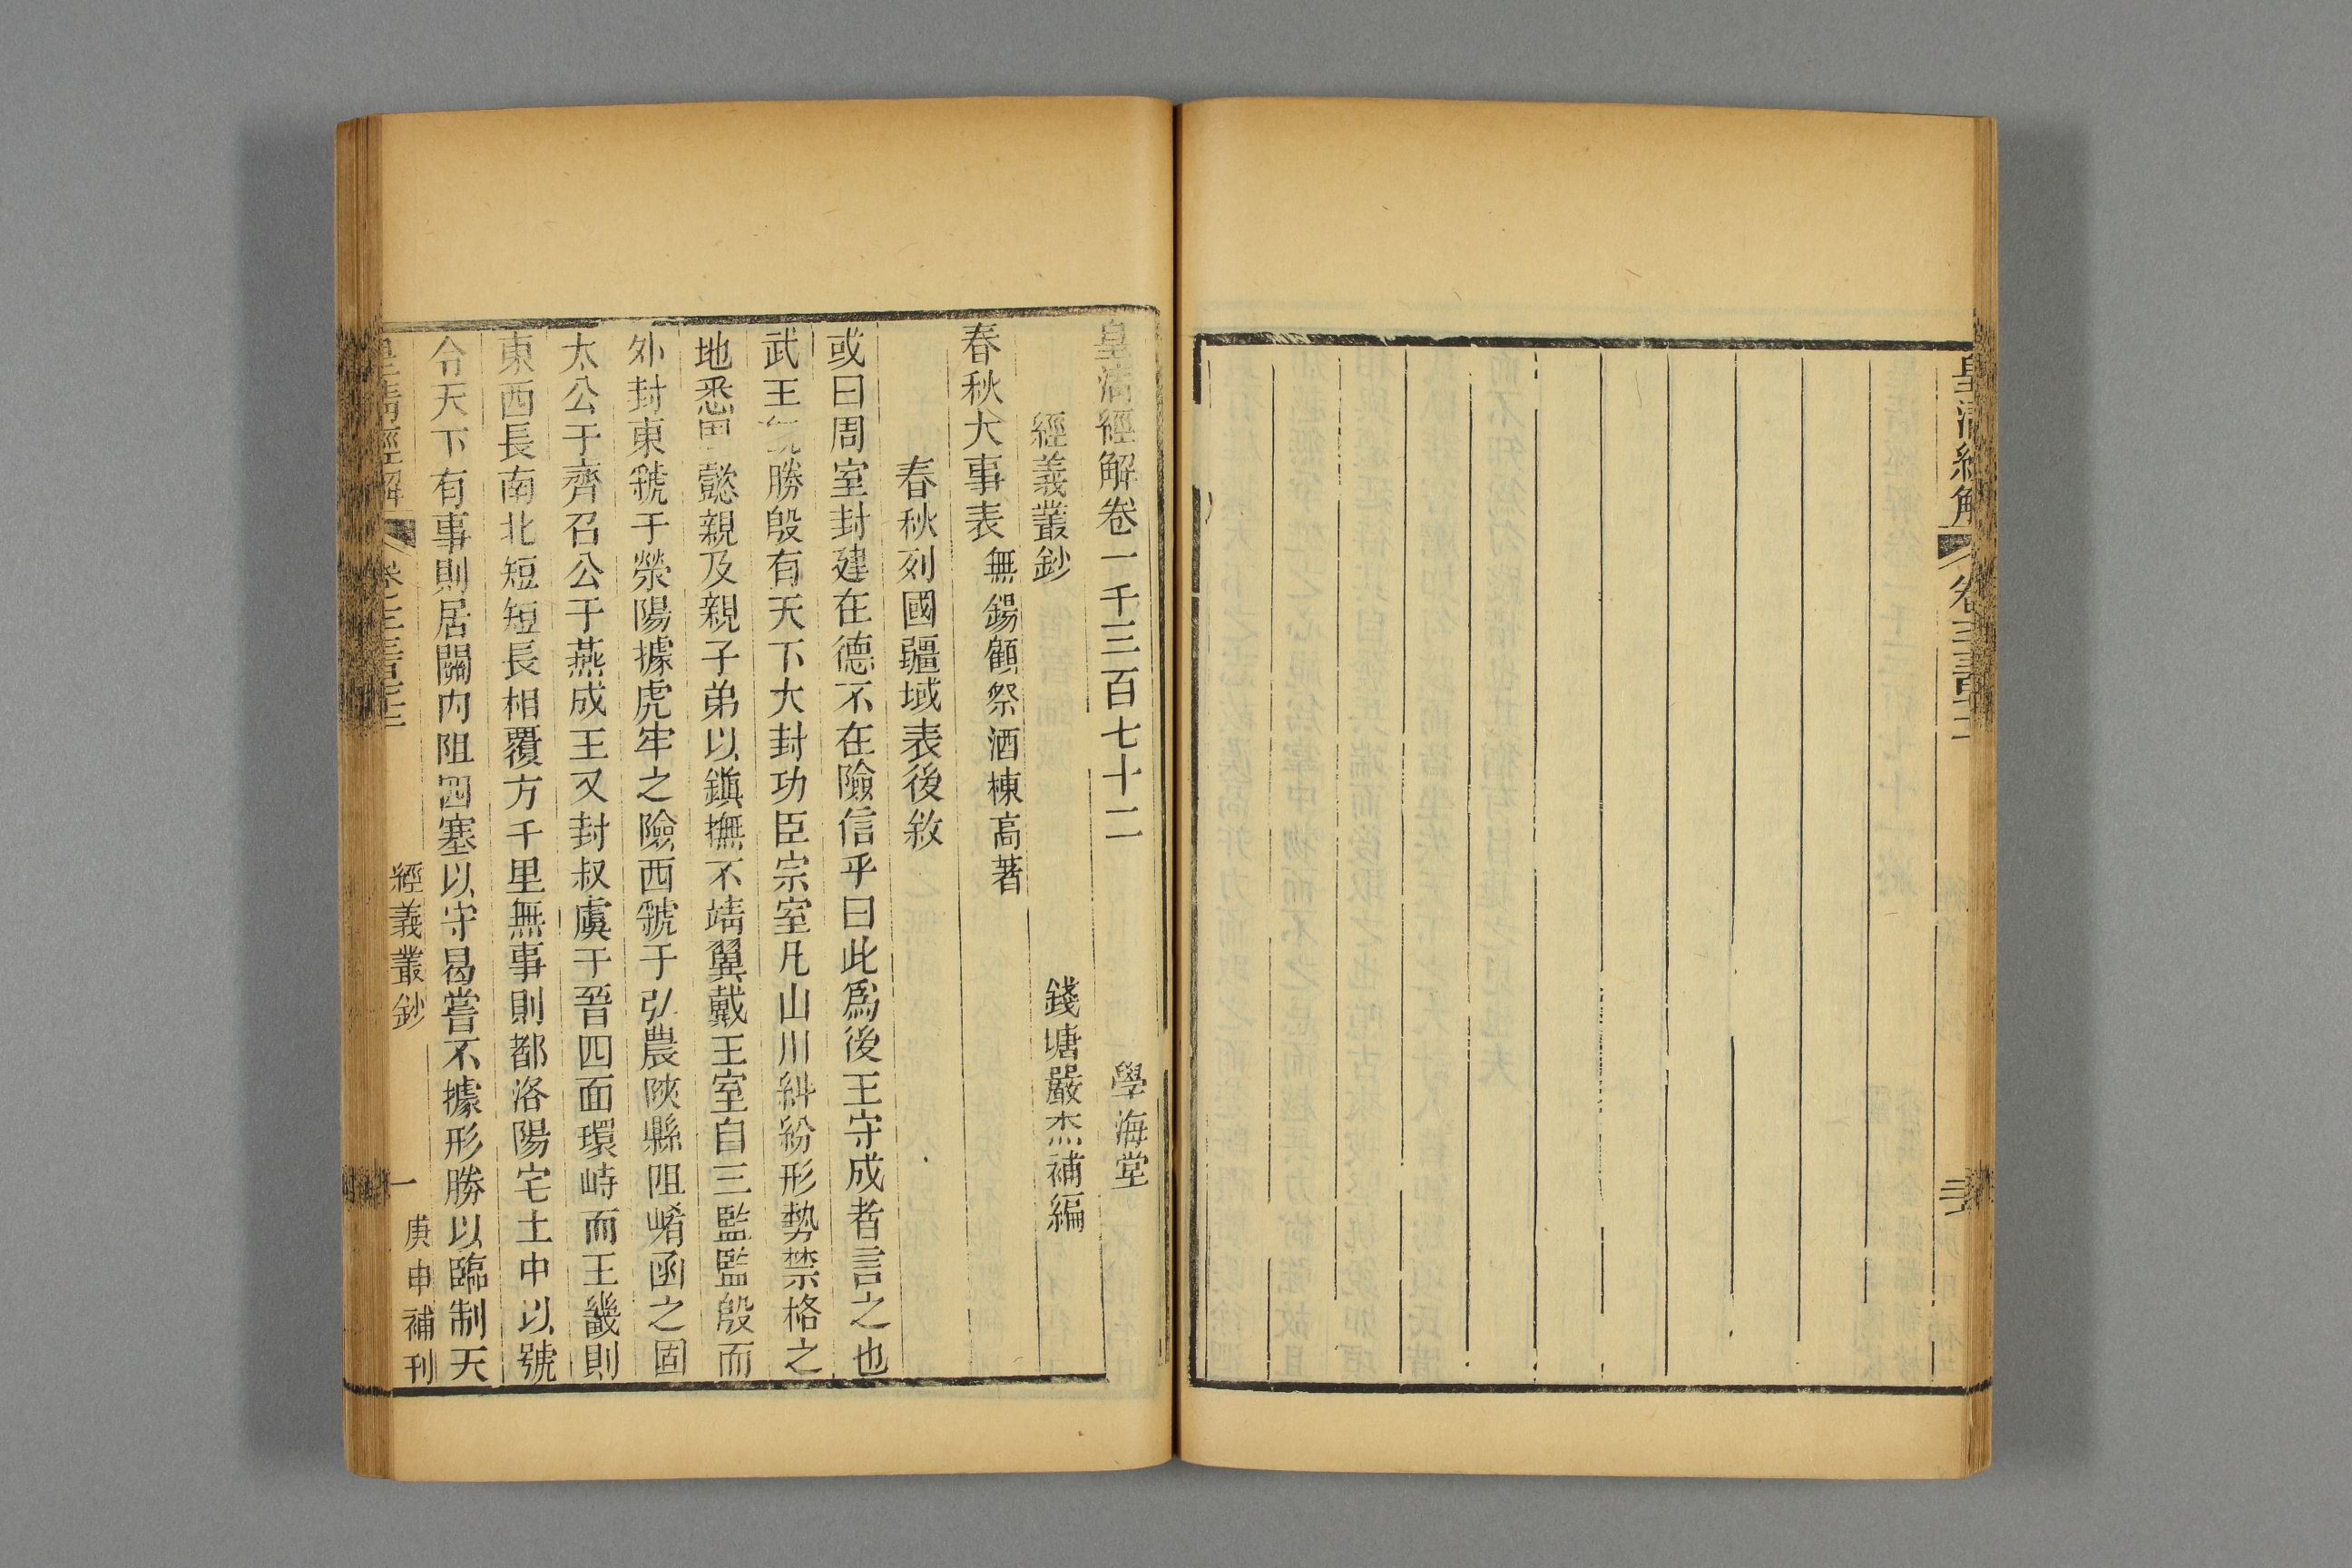 皇清經解
皇清經解卷一千三百七十二 學海堂
經義叢鈔 錢塘嚴杰補編
春秋大事表 無錫顧祭酒棟高著
春秋列國疆域表後敘
或曰周室封建在德不在險信乎曰此爲後王守成者言之也
武王勝殷有天下大封功臣宗室凡山川糾紛形勢禁格之
地悉懿親及親子弟以鎭撫不靖翼戴王室自三監監殷而
外封東虢于滎陽據虎牢之險西虢于弘農陝縣阻崤函之固
太公于齊召公于燕成王又封叔虞于晉四面環峙而王畿則
東西長南北短短長相覆方千里無事則都洛陽宅土中以號
令天下有事則居關內阻四塞以守曷嘗不據形勝以臨制天
皇清經解 經義叢鈔 一 庚申補刊